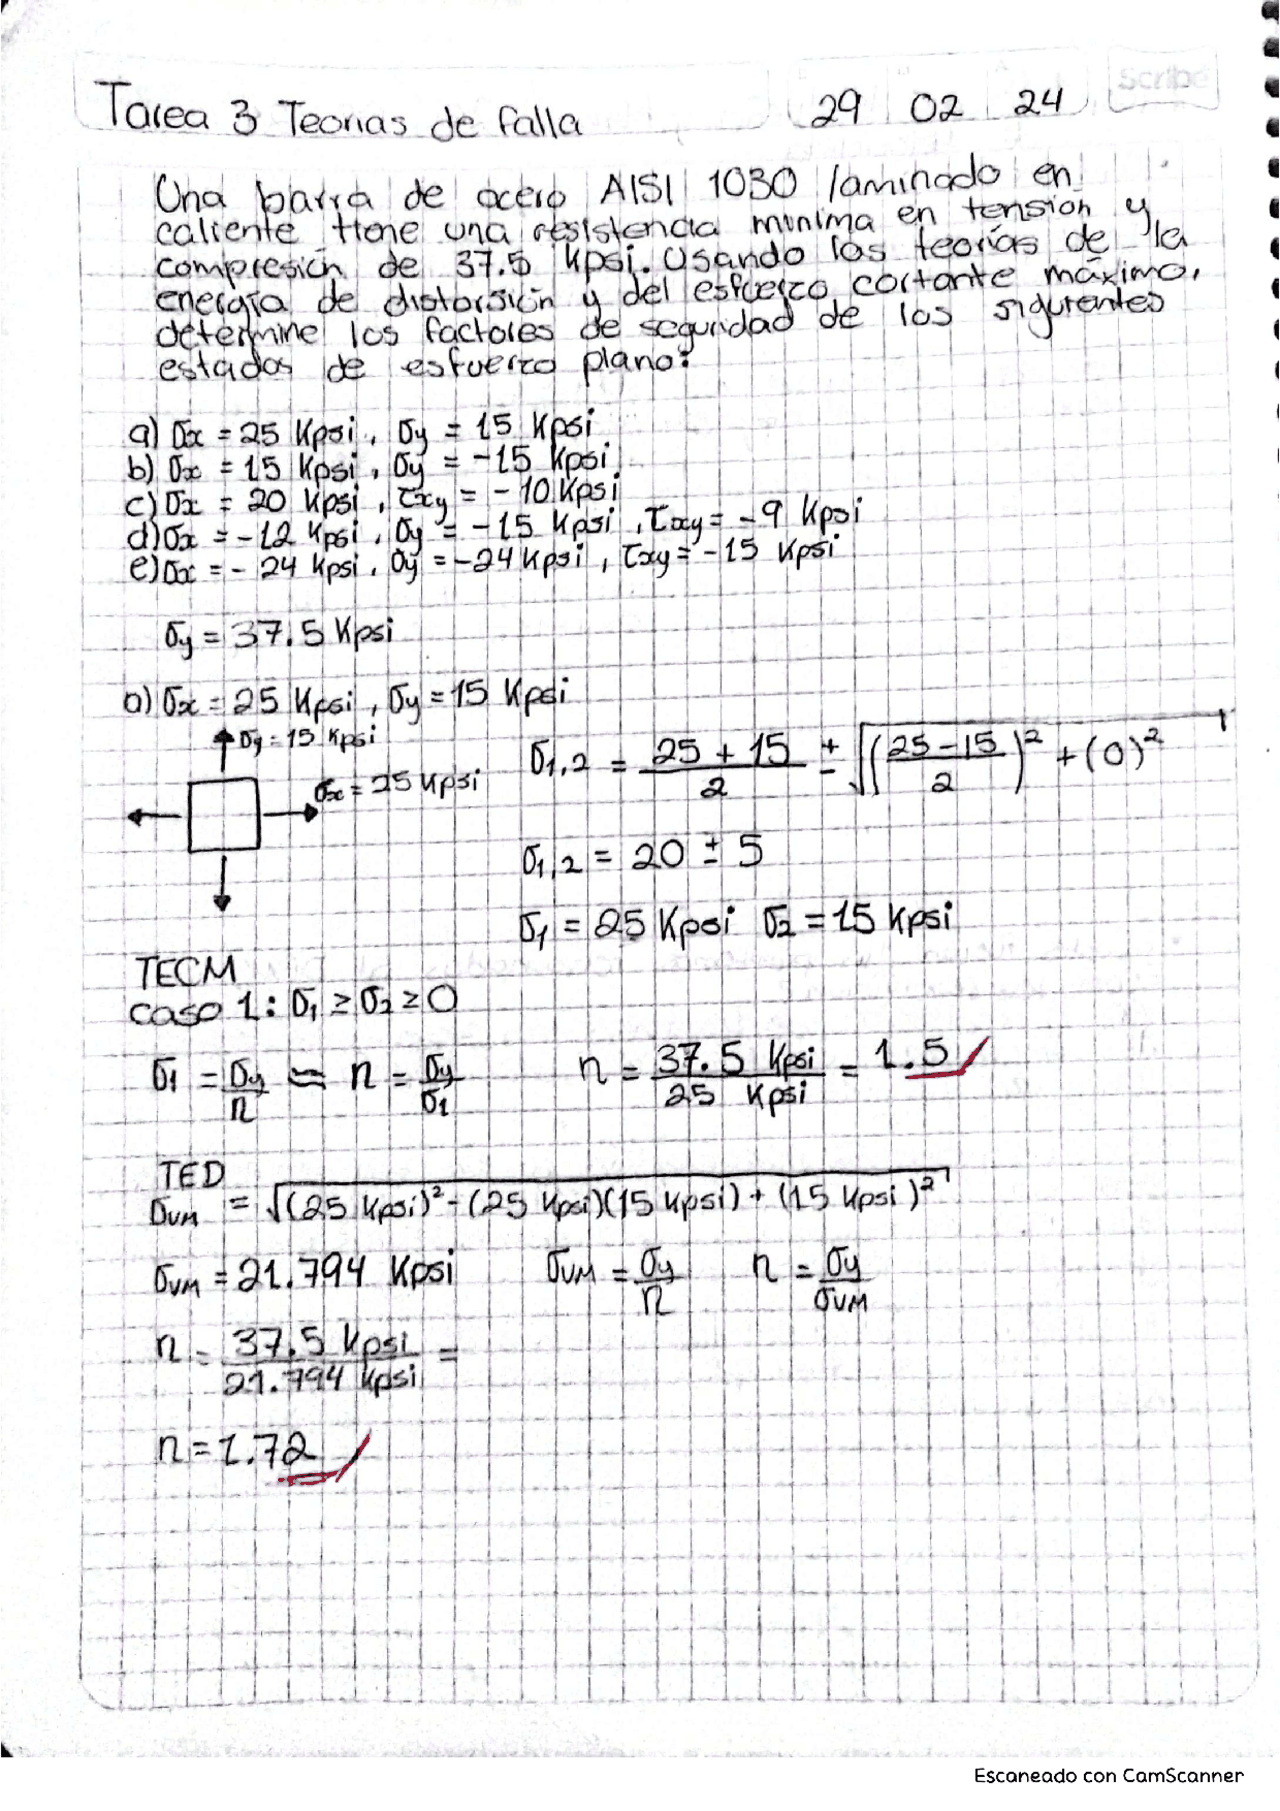 Scribe
Tarea 3 Teorias de falla 29 02 24
Una barra de acero AISI 1030 laminado en
caliente tiene una resistencia minima en tension y
compresión de 37.5 Kpsi. Usando las teorías de la
energía de distorsión y del esfuerzo cortante máximo,
determine los factores de seguridad de los siguientes
estados de esfuerzo plano:
a) σx = 25 Kpsi, σy = 15 Kpsi
b) σx = 15 Kpsi, σy = -15 Kpsi
c) σx = 20 Kpsi, τxy = -10 Kpsi
d) σx = -12 Kpsi, σy = -15 Kpsi, τxy = -9 Kpsi
e) σx = -24 Kpsi, σy = -24 Kpsi, τxy = -15 Kpsi
σy = 37.5 Kpsi
a) σx = 25 Kpsi, σy = 15 Kpsi
σy = 15 Kpsi
σx = 25 Kpsi
σ1,2 = (25 + 15)/2 ± √((25-15)/2)² + (0)²
σ1,2 = 20 ± 5
σ1 = 25 Kpsi σ2 = 15 Kpsi
TECM
caso 1: σ1 ≥ σ2 ≥ 0
σ1 = σy/n ≈ n = σy/σ1 n = 37.5 Kpsi/25 Kpsi = 1.5
TED
σVM = √(25 Kpsi)² - (25 Kpsi)(15 Kpsi) + (15 Kpsi)²
σVM = 21.794 Kpsi σVM = σy/n n = σy/σVM
n = 37.5 Kpsi/21.794 Kpsi =
n = 1.72
Escaneado con CamScanner